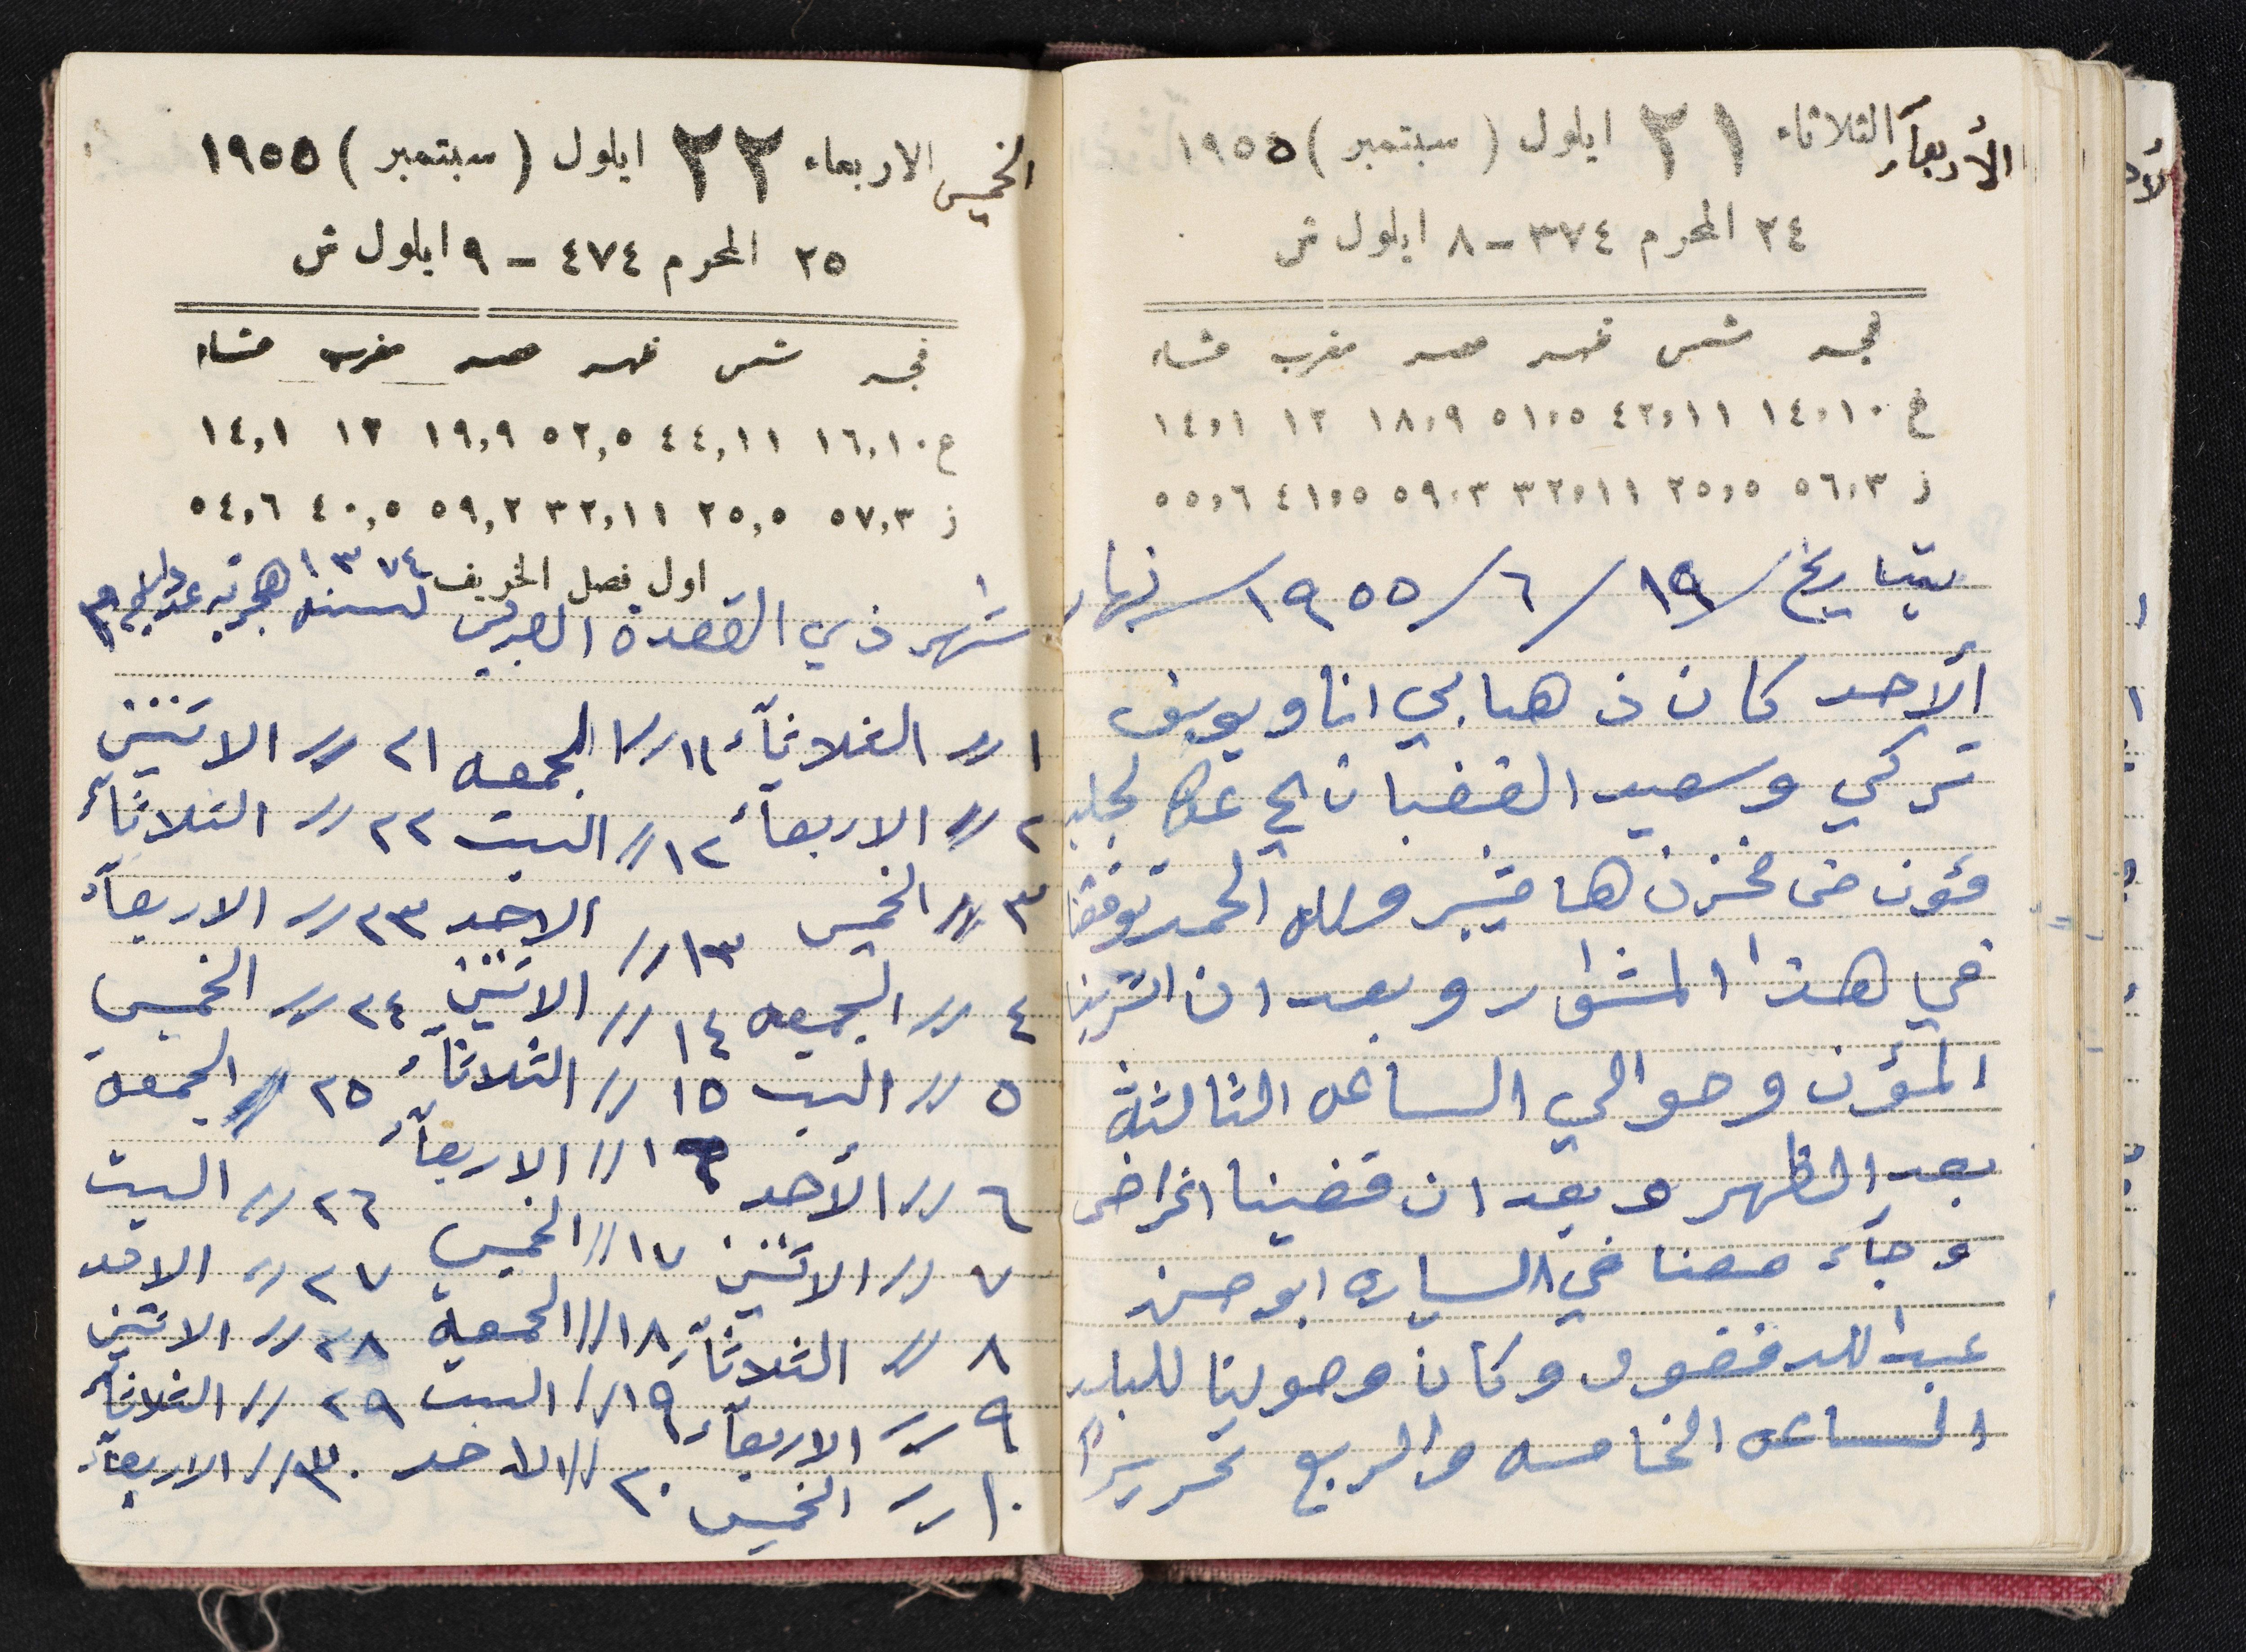 الأربعاء الثلاثاء ٢١ ايلول ( سبتمبر ) ١٩٥٥
٢٤ المحرم ٣٧٤ - ٨ ايلول ش
فجر شمس ظهر عصر مغرب عشاء
غ ١٤,١٠ ٤٢,١١ ٥١,٥ ١٨,٩ ١٢ ١٤,١
ز ٥٦,٣ ٢٥,٥ ٣٢,١١ ٥٩,٣ ٤١,٥ ٥٥,٦
بتاريخ / ١٩ / ٦ / ١٩٥٥ / نهار
الأحد كان ذهابي انا ويوسف
تركي وسعيد الغضبان الى عكا لجلب
مؤن من مخزن هامشبير ولله الحمد توفقنا
في هذا المشوار وبعد ان اشترينا
المؤن وحوالي الساعه الثالثة
بعد الظهر وبعد ان قضينا اغراض
وجآء معنا في السياره ابو حسن
عبد الله فضول وكان وصولنا للبلد
الساعه الخامسه والربع تحريرًا
الخميس الاربعاء ٢٢ ايلول ( سبتمبر ) ١٩٥٥
٢٥ المحرم ٤٧٤ - ٩ ايلول ش
فجر شمس ظهر عصر مغرب عشاء
ع ١٦,١٠ ٤٤,١١ ٥٢,٥ ١٩,٩ ١٢ ١٤,١
ز ٥٧,٣ ٢٥,٥ ٣٢,١١ ٥٩,٢ ٤٠,٥ ٥٤,٦
اول فصل الخريف
شهر ذي القعدة العربي لسنة ١٣٧٤ هجريه
١ // الثلاثآء ١١ // الجمعه ٢١ // الاثنين
٢ // الاربعآء ١٢ // السبت ٢٢ // الثلاثآء
٣ // الخميس ١٣ // الاحد ٢٣ // الاربعآء
٤ // الجمعه ١٤ // الاثنين ٢٤ // الخميس
٥ // السبت ١٥ // الثلاثآء ٢٥ // الجمعة
٦ // الأحد ١٦ // الاربعآء ٢٦ // السبت
٧ // الاثنين ١٧ // الخميس ٢٧ // الاحد
٨ // الثلاثآء ١٨ // الجمعة ٢٨ // الاثنين
٩ // الاربعآء ١٩ // السبت ٢٩ // الثلاثآء
١٠ // الخميس ٢٠ // الاحد ٣٠ // الاربعآء